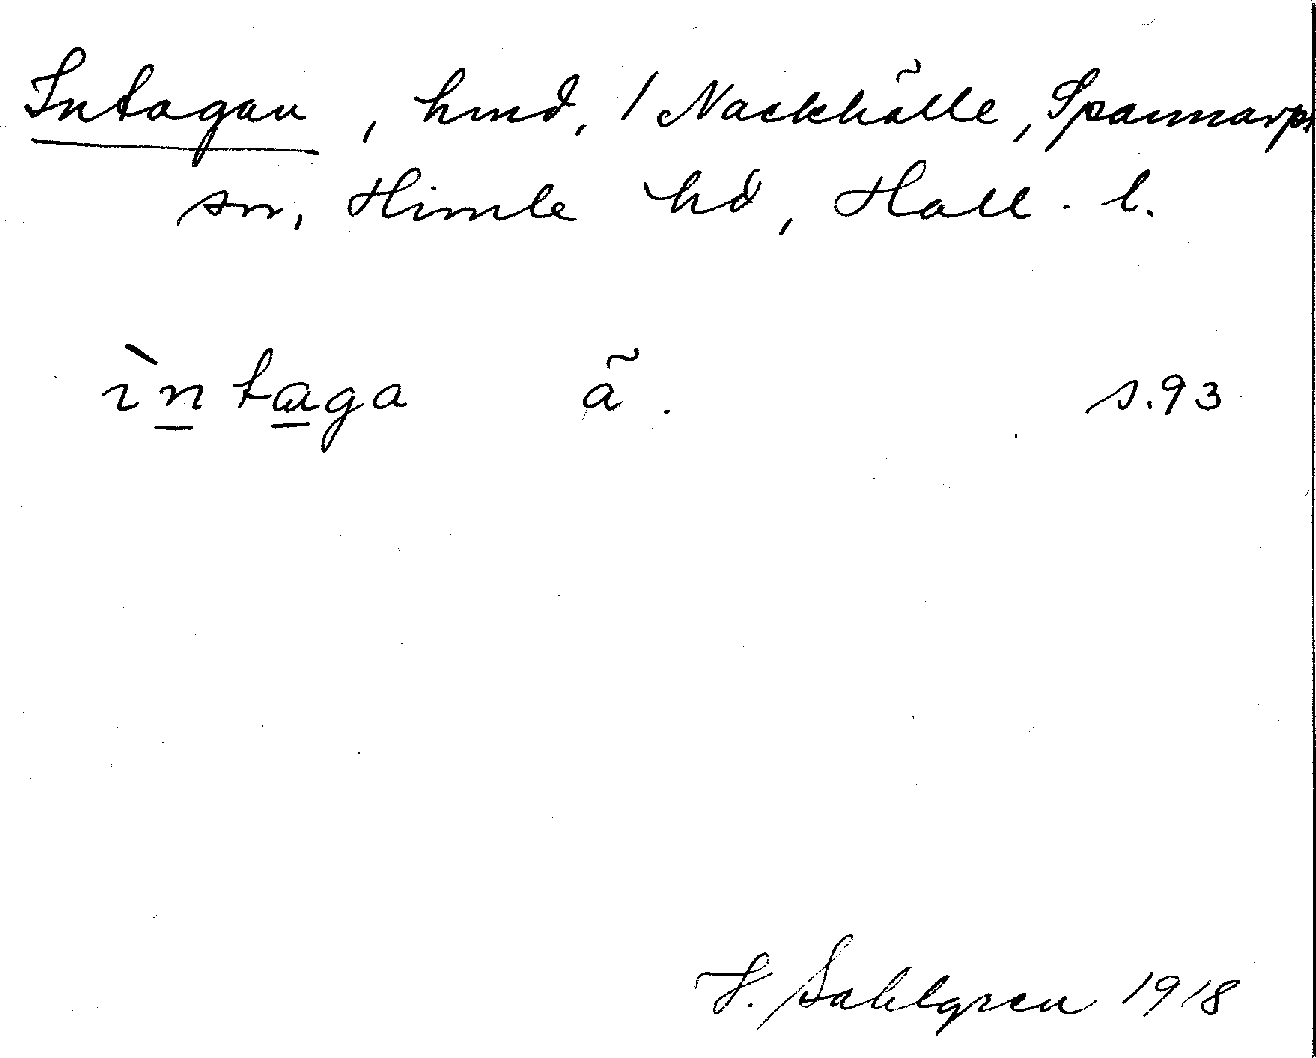 Intagan, hmd, / Nackhälle, Spannarps
sn, Himle hd, Hall. l.
ìn taga ã. s. 93
J. Sahlgren 1918